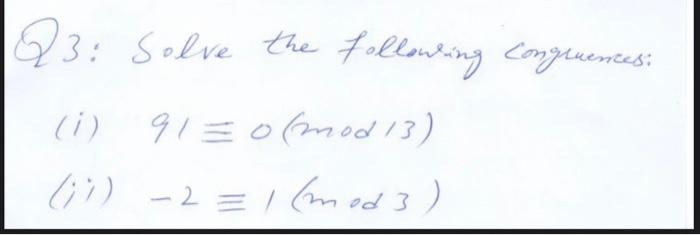 Q3: Solve the following congruences:
(i) 91 ≡ 0 (mod 13)
(ii) -2 ≡ 1 (mod 3)